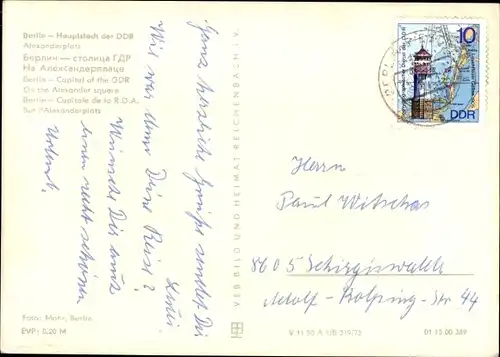 Berlin – Hauptstadt der DDR
Alexanderplatz
Берлин — столица ГДР
На Александерплаце
Berlin – Capital of the GDR
On the Alexander square
Berlin – Capitale de la R.D.A.
Sur l'Alexanderplatz
Ganz herzliche Grüße sendet Dir
Wie war denn Deine Reise?
Wünsche Dir auch
einen recht schönen
Urlaub.
Foto: Mohr, Berlin
EVP: 0,20 M
VEB BILD UND HEIMAT REICHENBACH I. V.
V 11 50 A 1/B 319/73
01 15 00 389
10
DDR
Herrn
Paul Witschas
8605 Schirgiswalde
Adolf-Kolping-Str 44